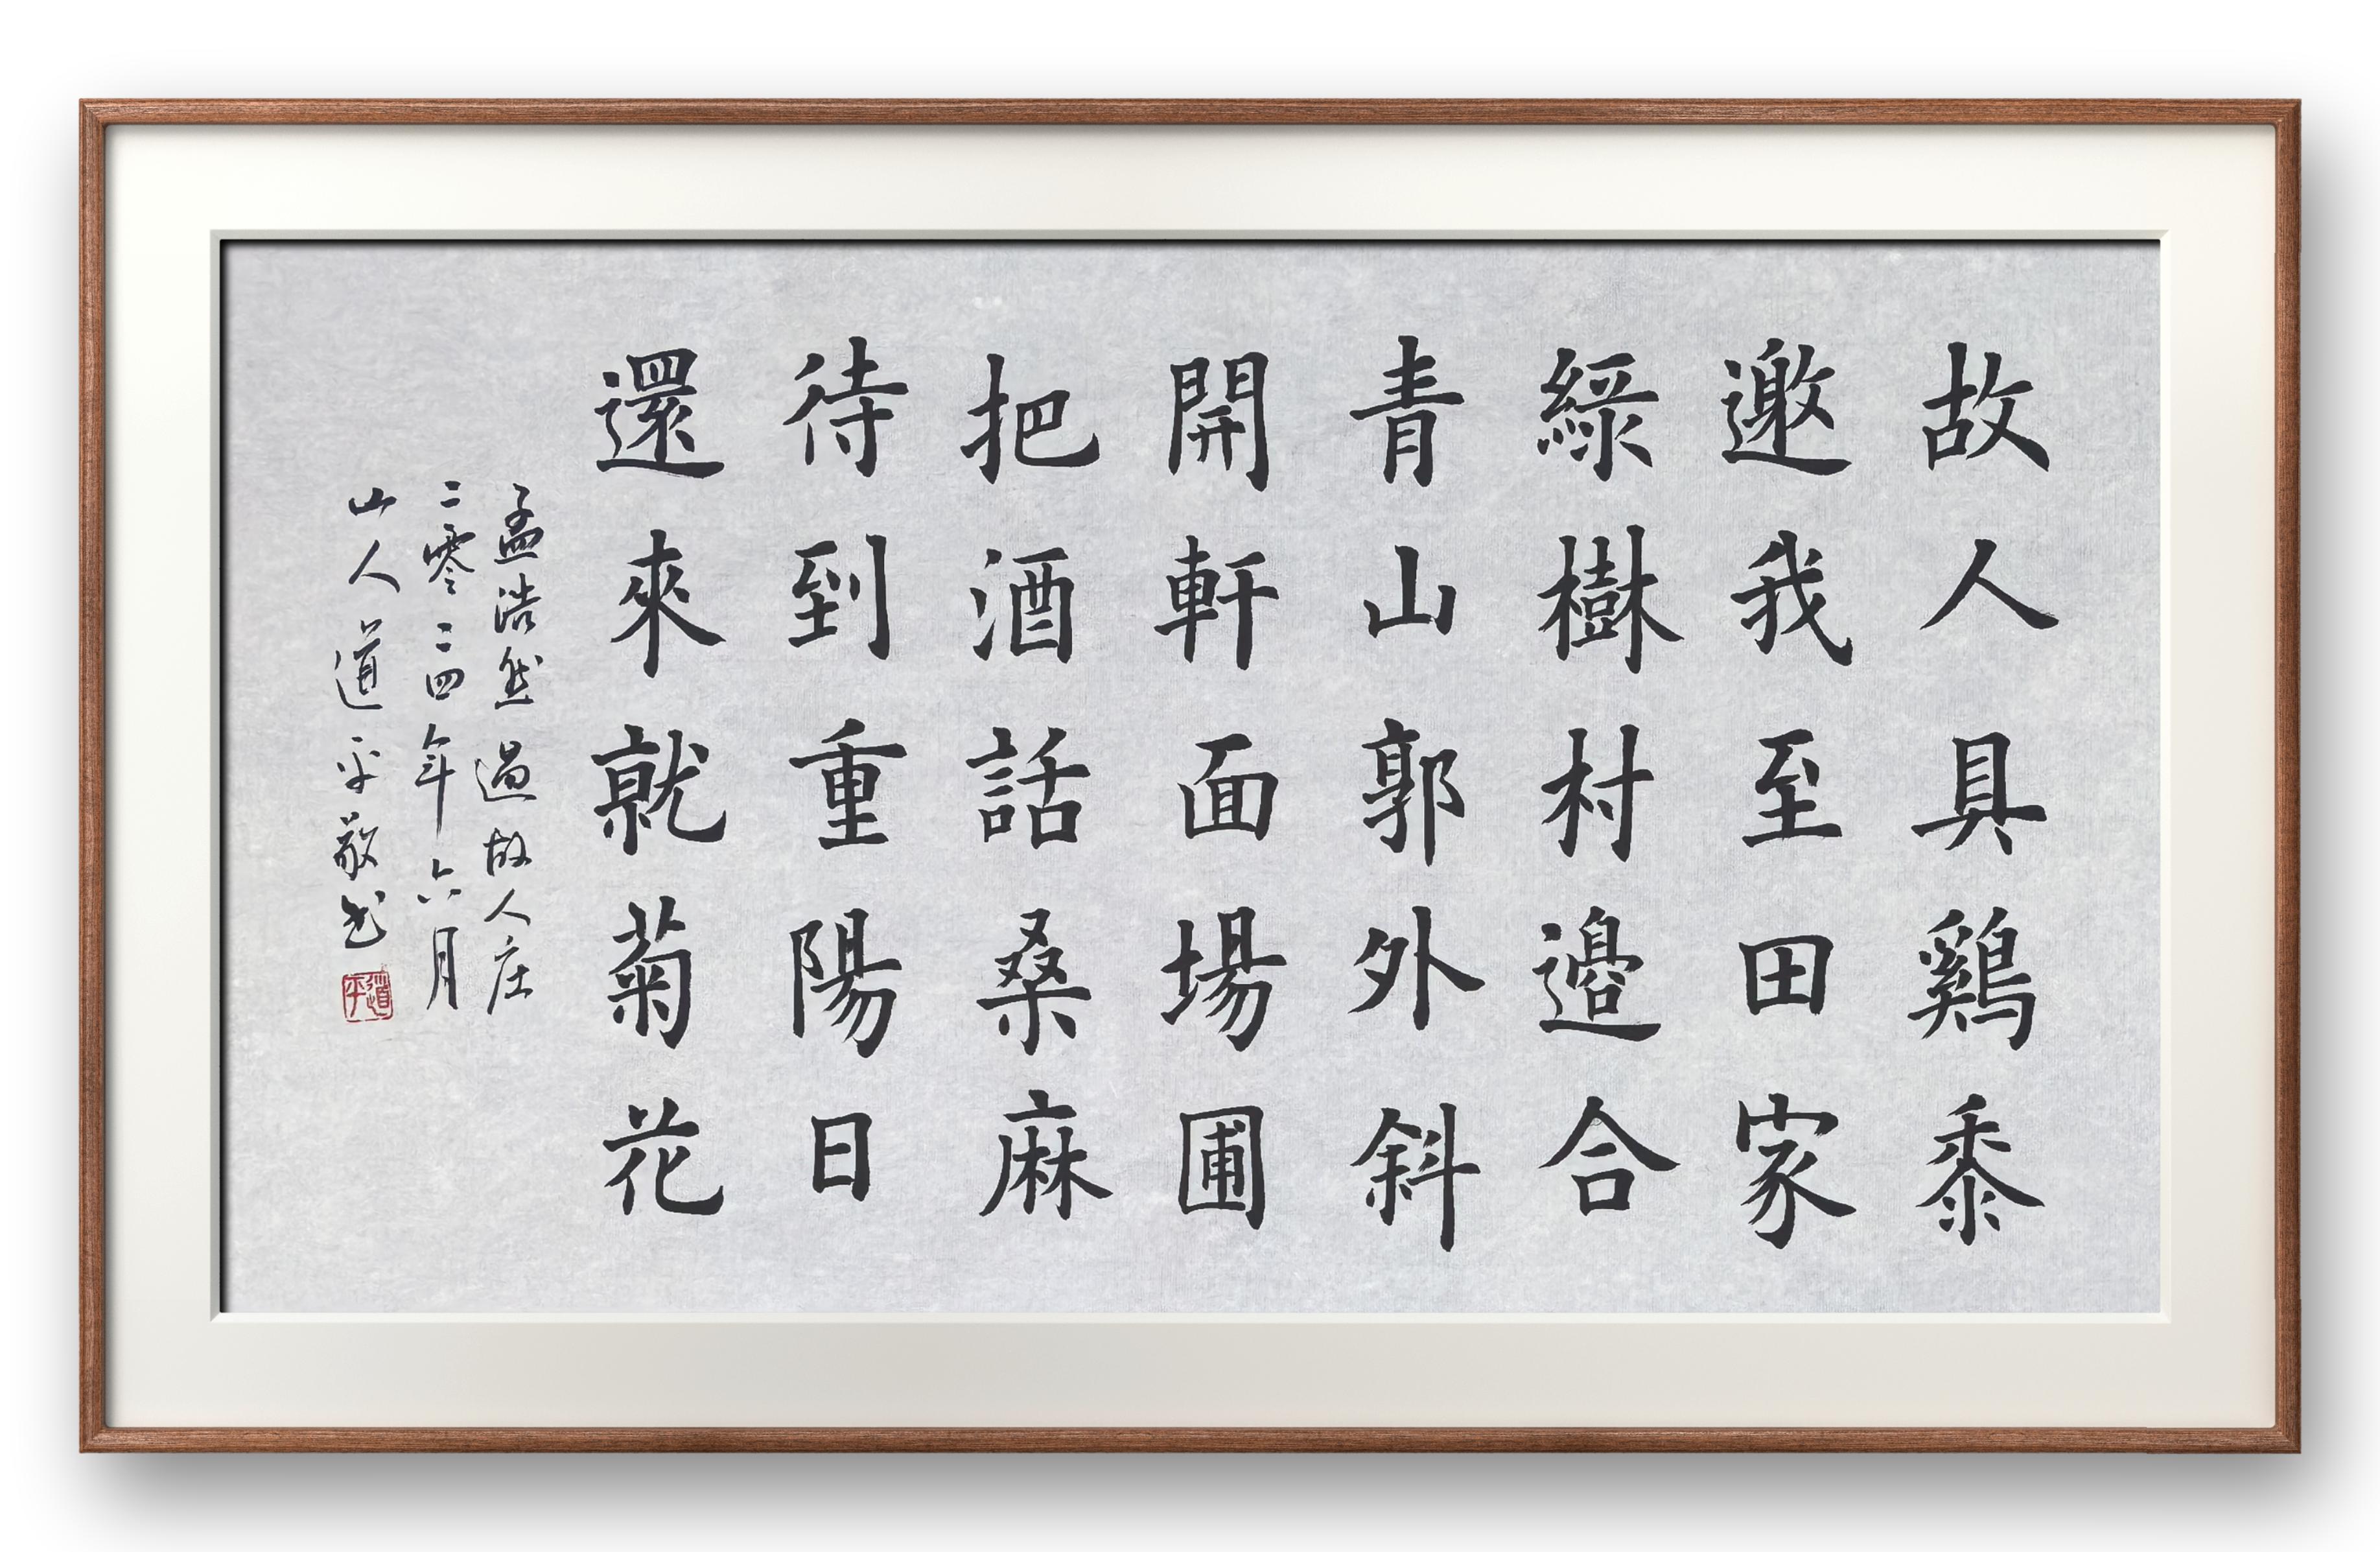 故人具鷄黍
邀我至田家
綠樹村邊合
青山郭外斜
開軒面場圃
把酒話桑麻
待到重陽日
還來就菊花
孟浩然過故人庄
二零二四年六月
山人道平敬书
道平